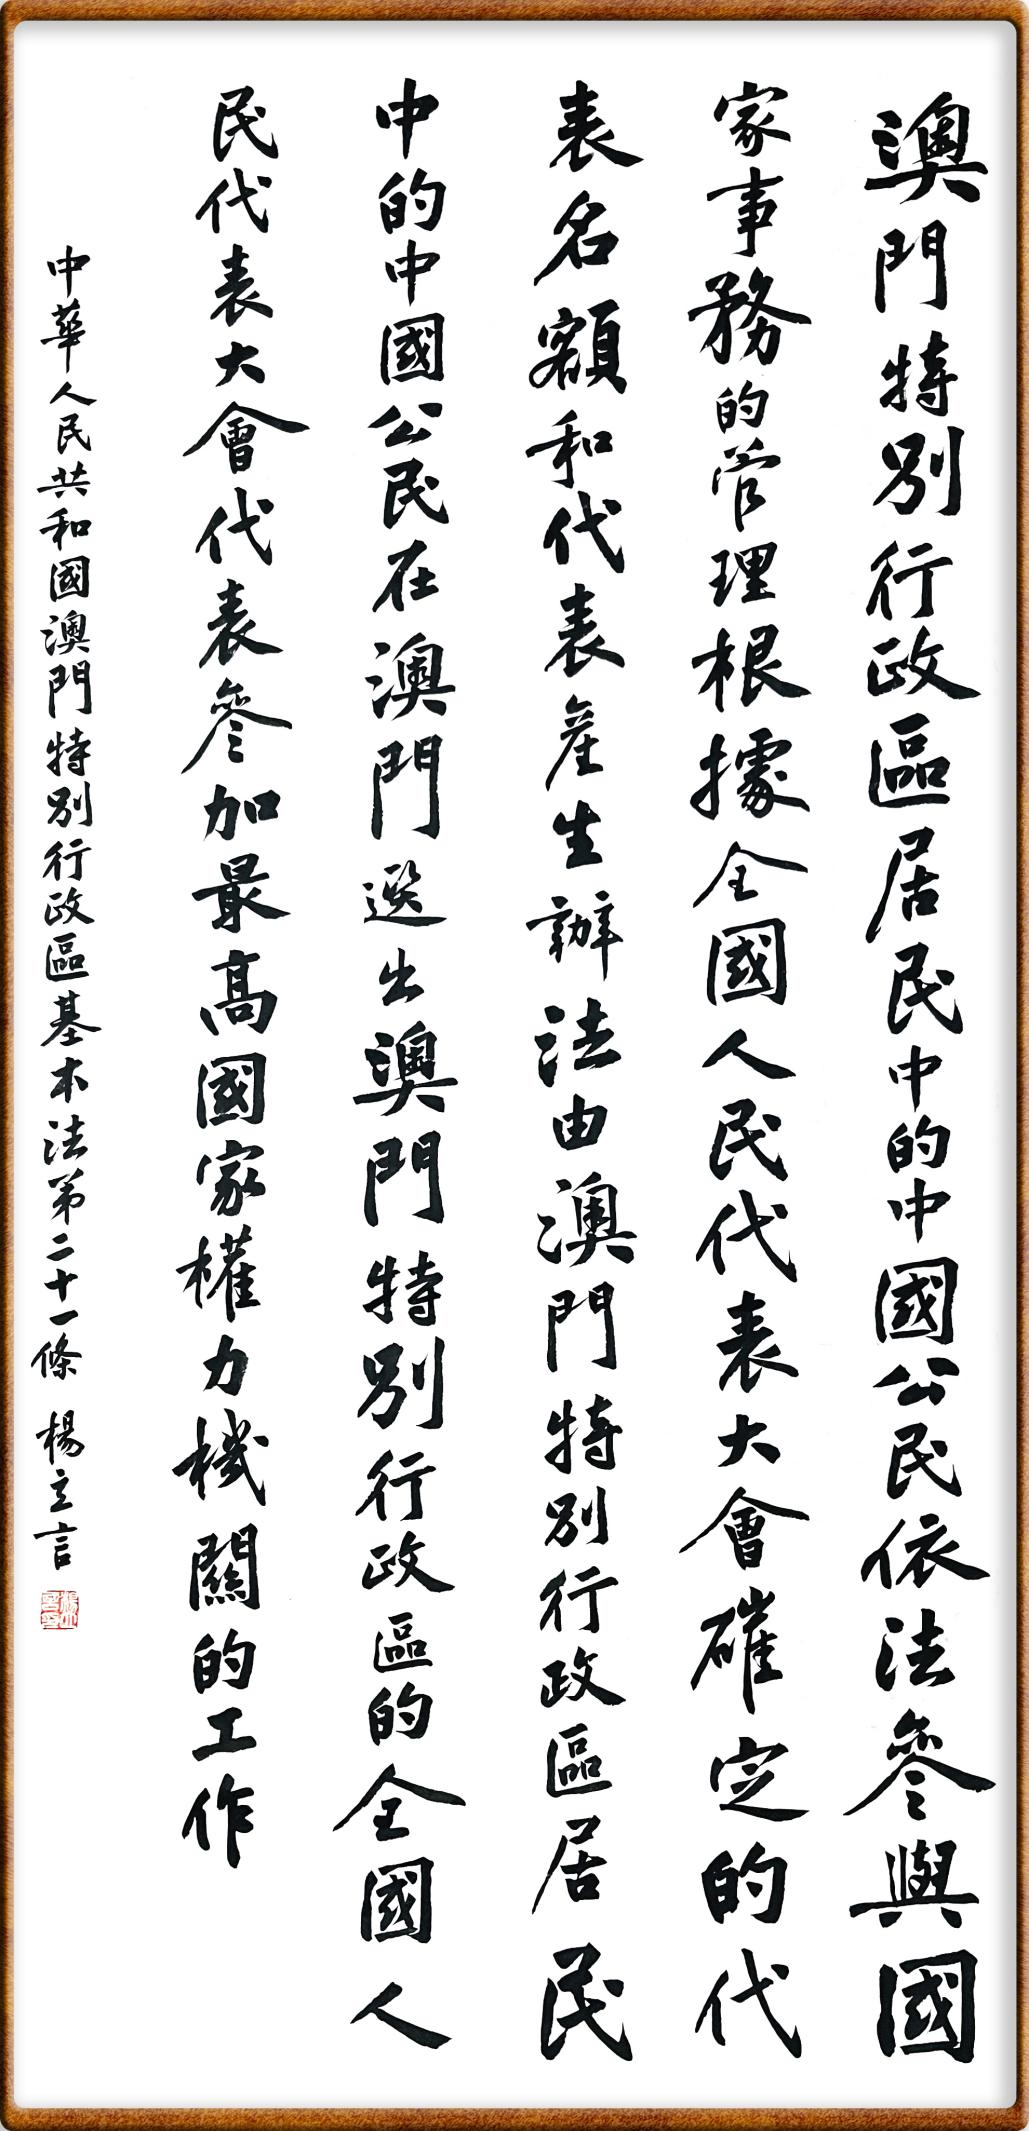 澳門特別行政區居民中的中國公民依法參與國
家事務的管理根據全國人民代表大會確定的代
表名額和代表產生辦法由澳門特別行政區居民
中的中國公民在澳門選出澳門特別行政區的全國人
民代表大會代表參加最高國家權力機關的工作
中華人民共和國澳門特別行政區基本法第二十一條 楊立言